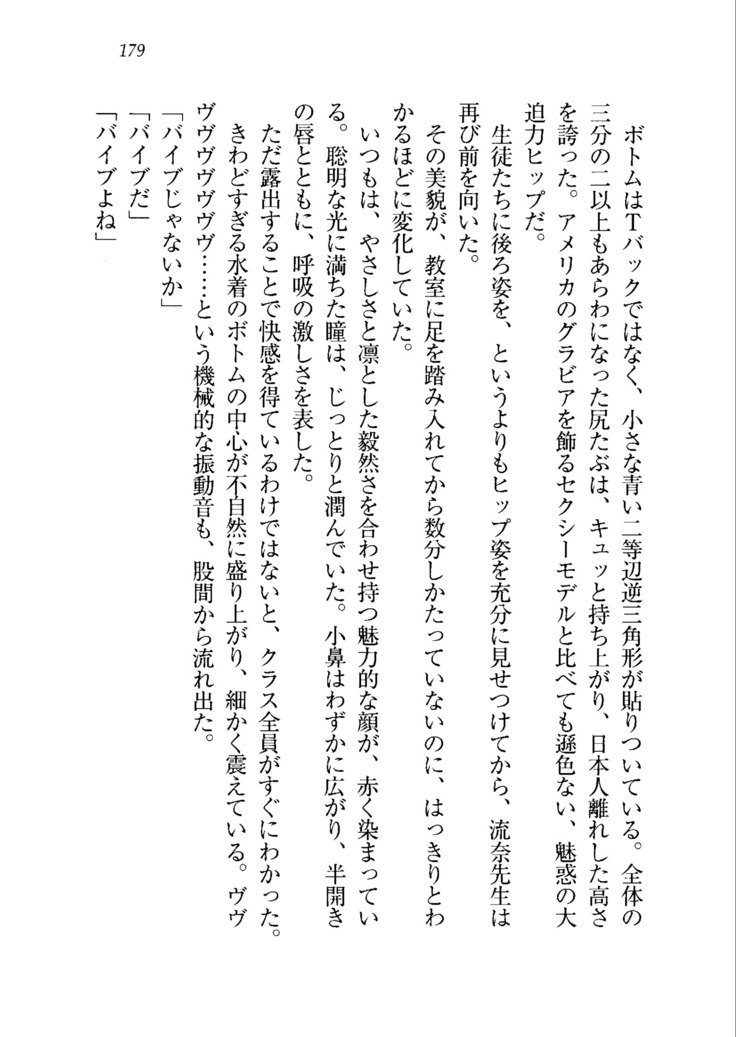 179
ボトムはTバックではなく、小さな青い二等辺逆三角形が貼りついている。全体の
三分の二以上もあらわになった尻たぶは、キュッと持ち上がり、日本人離れした高さ
を誇った。アメリカのグラビアを飾るセクシーモデルと比べても遜色ない、魅惑の大
迫力ヒップだ。
生徒たちに後ろ姿を、というよりもヒップ姿を充分に見せつけてから、流奈先生は
再び前を向いた。
その美貌が、教室に足を踏み入れてから数分しかたっていないのに、はっきりとわ
かるほどに変化していた。
いつもは、やさしさと凛とした毅然さを合わせ持つ魅力的な顔が、赤く染まってい
る。聡明な光に満ちた瞳は、じっとりと潤んでいた。小鼻はわずかに広がり、半開き
の唇とともに、呼吸の激しさを表した。
ただ露出することで快感を得ているわけではないと、クラス全員がすぐにわかった。
きわどすぎる水着のボトムの中心が不自然に盛り上がり、細かく震えている。ヴヴ
ヴヴヴヴヴヴヴ……という機械的な振動音も、股間から流れ出た。
「バイブじゃないか」
「バイブだ」
「バイブよね」